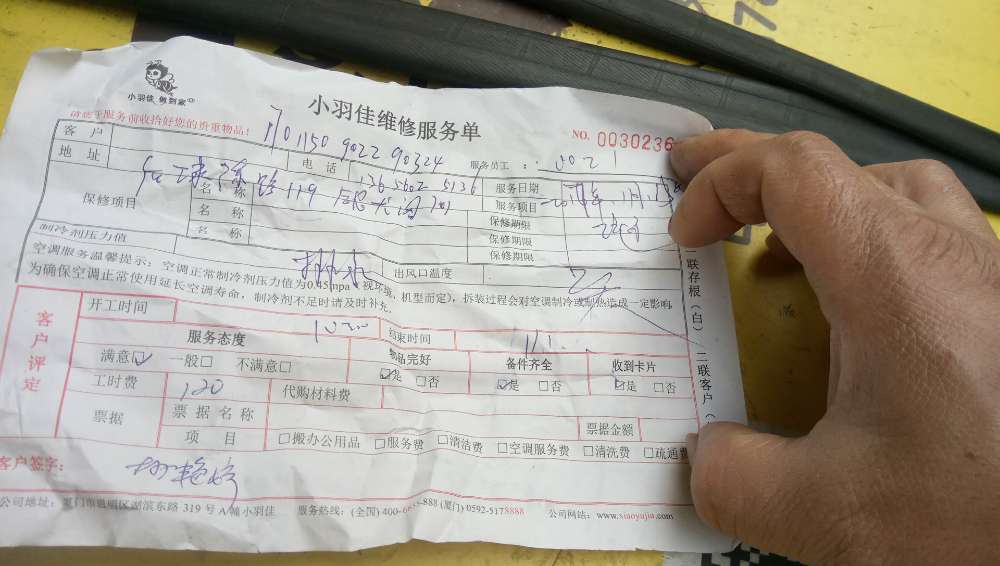 小羽佳 做到家
小羽佳维修服务单
请您于服务前收拾好您的贵重物品!
NO. 0030236
客户
1150 9022 90324
服务员工: 0021
地址
电话
136 5602 5136
路119
服务日期
保修项目
名称
服务项目
名称
保修期限
名称
保修期限
保修期限
制冷剂压力值
出风口温度
空调服务温馨提示:空调正常制冷剂压力值为0.45mpa(视环境、机型而定),拆装过程会对空调制冷或制热造成一定影响
为确保空调正常使用延长空调寿命,制冷剂不足时请及时补充.
联存根(白) 二联客户
客户评定
开工时间
结束时间
服务态度
物品完好
备件齐全
收到卡片
满意☑ 一般□ 不满意□
☑是 □否
☑是 □否
☑是 □否
工时费 120
代购材料费
票据
票据名称
票据金额
项目
□搬办公用品 □服务费 □清洁费 □空调服务费 □清洗费 □疏通费
客户签字:
公司地址:厦门市思明区湖滨东路 319 号 A 幢小羽佳 服务热线:(全国) 400-6 -888 (厦门) 0592-5178888 公司网站: www.xiaoyujia.com